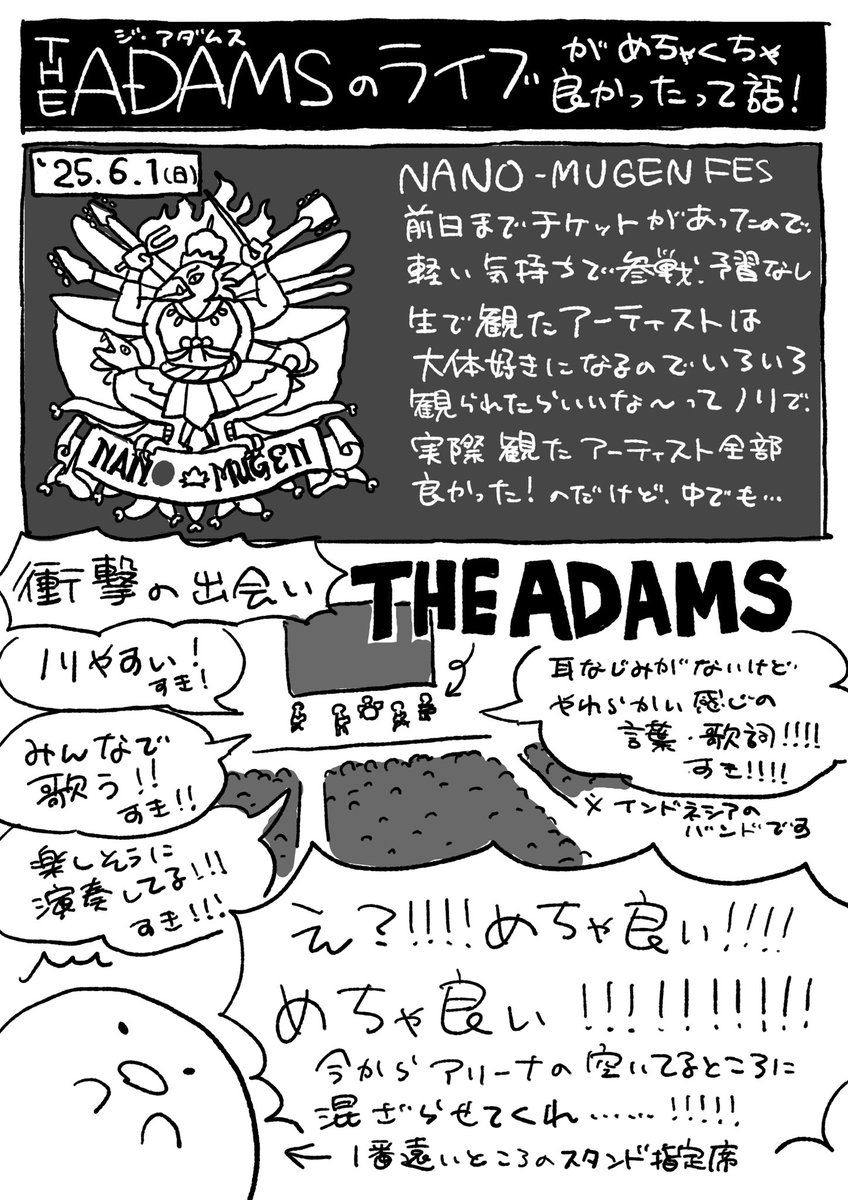 ジ・アダムス
THE ADAMSのライブ
がめちゃくちゃ
良かったって話！
'25.6.1(日)
NANO-MUGEN
NANO-MUGEN FES
前日までチケットがあったので、
軽い気持ちで参戦、予習なし
生で観たアーティストは
大体好きになるのでいろいろ
観られたらいいな〜ってノリで、
実際観たアーティスト全部
良かった！のだけど、中でも…
衝撃の出会い
THE ADAMS
ノリやすい！
すき！
耳なじみがないけど
やわらかい感じの
言葉・歌詞!!!!
すき!!!!
みんなで
歌う!!
すき!!
※インドネシアの
バンドです
楽しそうに
演奏してる!!!
すき!!!
え?!!!!めちゃ良い!!!!
めちゃ良い!!!!!!!!!!
今からアリーナの空いてるところに
混ざらせてくれ……!!!!!
←1番遠いところのスタンド指定席